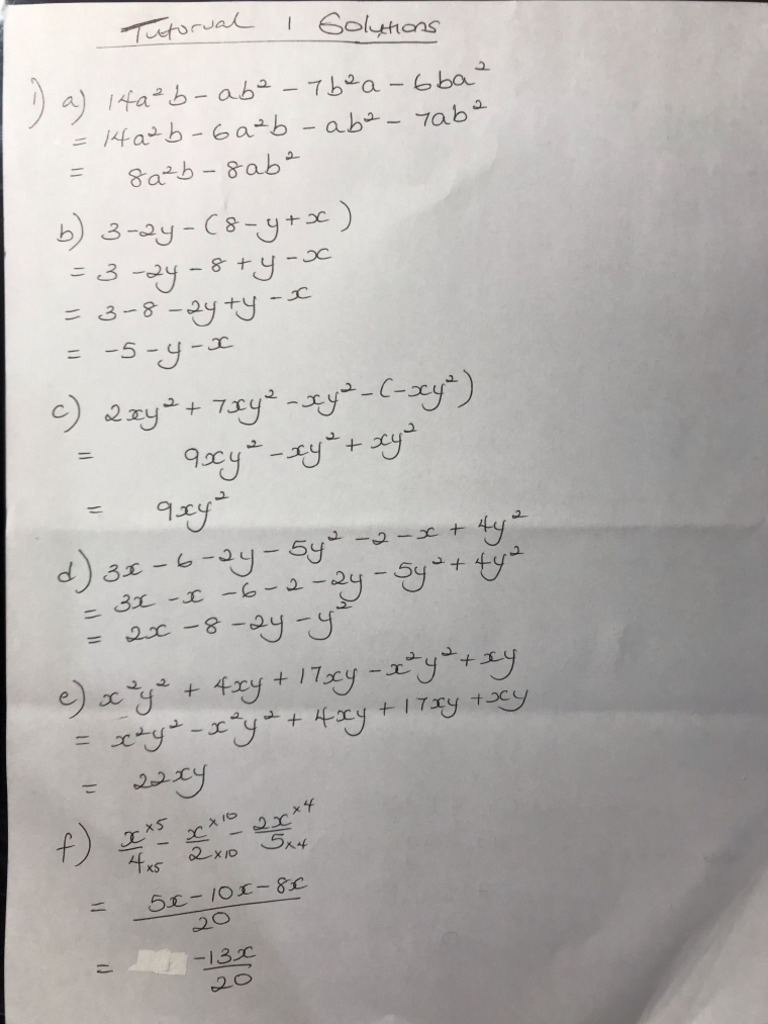 Tutorual 1 Solutions
1) a) 14a²b - ab² - 7b²a - 6ba²
= 14a²b - 6a²b - ab² - 7ab²
= 8a²b - 8ab²
b) 3 - 2y - (8 - y + x)
= 3 - 2y - 8 + y - x
= 3 - 8 - 2y + y - x
= -5 - y - x
c) 2xy² + 7xy² - xy² - (-xy²)
= 9xy² - xy² + xy²
= 9xy²
d) 3x - 6 - 2y - 5y² - 2 - x + 4y²
= 3x - x - 6 - 2 - 2y - 5y² + 4y²
= 2x - 8 - 2y - y²
e) x²y² + 4xy + 17xy - x²y² + xy
= x²y² - x²y² + 4xy + 17xy + xy
= 22xy
f) x ×5/4 ×5 - x ×10/2 ×10 - 2x ×4/5 ×4
= 5x - 10x - 8x/20
= -13x/20